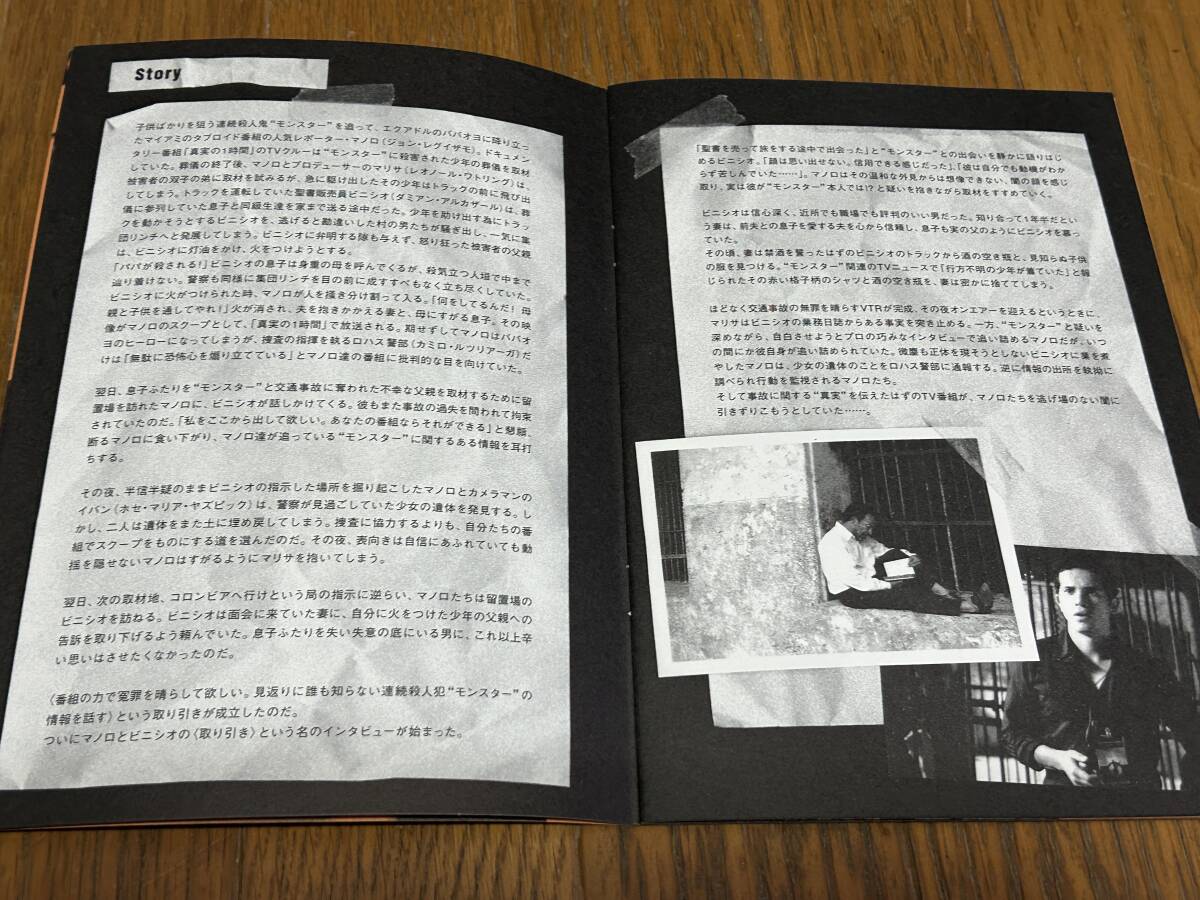 Story
子供ばかりを狙う連続殺人鬼“モンスター”を追って、エクアドルのババオヨに降り立っ
たマイアミのタブロイド番組の人気レポーター・マノロ（ジョン・レグイザモ）。ドキュメン
タリー番組「真実の1時間」のTVクルーは“モンスター”に殺害された少年の葬儀を取材
していた。葬儀の終了後、マノロとプロデューサーのマリサ（レオノール・ワトリング）は、
被害者の双子の弟に取材を試みるが、急に駆け出したその少年はトラックの前に飛び出
してしまう。トラックを運転していた聖書販売員ビニシオ（ダミアン・アルカザール）は、葬
儀に参列していた息子と同級生達を家まで送る途中だった。少年を助け出す為にトラッ
クを動かそうとするビニシオを、逃げると勘違いした村の男たちが騒ぎ出し、一気に集
団リンチへと発展してしまう。ビニシオに弁明する隙も与えず、怒り狂った被害者の父親
は、ビニシオに灯油をかけ、火をつけようとする。
「パパが殺される！」ビニシオの息子は身重の母を呼んでくるが、殺気立つ人垣で中まで
辿り着けない。警察も同様に集団リンチを目の前に成すすべもなく立ち尽くしていた。
ビニシオに火がつけられた時、マノロが人を掻き分け割って入る。「何をしてるんだ！母
親と子供を通してやれ！」火が消され、夫を抱きかかえる妻と、母にすがる息子。その映
像がマノロのスクープとして、「真実の1時間」で放送される。期せずしてマノロはババオ
ヨのヒーローになってしまうが、捜査の指揮を執るロハス警部（カミロ・ルツリアーガ）だ
けは「無駄に恐怖心を煽り立てている」とマノロ達の番組に批判的な目を向けていた。
翌日、息子ふたりを“モンスター”と交通事故に奪われた不幸な父親を取材するために留
置場を訪れたマノロに、ビニシオが話しかけてくる。彼もまた事故の過失を問われて拘束
されていたのだ。「私をここから出して欲しい。あなたの番組ならそれができる」と懇願、
断るマノロに食い下がり、マノロ達が追っている“モンスター”に関するある情報を耳打
ちする。
その夜、半信半疑のままビニシオの指示した場所を掘り起こしたマノロとカメラマンの
イバン（ホセ・マリア・ヤズピック）は、警察が見過ごしていた少女の遺体を発見する。し
かし、二人は遺体をまた土に埋め戻してしまう。捜査に協力するよりも、自分たちの番
組でスクープをものにする道を選んだのだ。その夜、表向きは自信にあふれていても動
揺を隠せないマノロはすがるようにマリサを抱いてしまう。
翌日、次の取材地、コロンビアへ行けという局の指示に逆らい、マノロたちは留置場の
ビニシオを訪ねる。ビニシオは面会に来ていた妻に、自分に火をつけた少年の父親への
告訴を取り下げるよう頼んでいた。息子ふたりを失い失意の底にいる男に、これ以上辛
い思いはさせたくなかったのだ。
〈番組の力で冤罪を晴らして欲しい。見返りに誰も知らない連続殺人犯“モンスター”の
情報を話す〉という取り引きが成立したのだ。
ついにマノロとビニシオの〈取り引き〉という名のインタビューが始まった。
「聖書を売って旅をする途中で出会った」と“モンスター”との出会いを静かに語りはじ
めるビニシオ。「顔は思い出せない。信用できる感じだった」「彼は自分でも動機がわか
らず苦しんでいた……」。マノロはその温和な外見からは想像できない、闇の顔を感じ
取り、実は彼が“モンスター”本人では!?と疑いを抱きながら取材をすすめていく。
ビニシオは信心深く、近所でも職場でも評判のいい男だった。知り合って1年半だとい
う妻は、前夫との息子を愛する夫を心から信頼し、息子も実の父のようにビニシオを慕っ
ていた。
その頃、妻は禁酒を誓ったはずのビニシオのトラックから酒の空き瓶と、見知らぬ子供
の服を見つける。“モンスター”関連のTVニュースで「行方不明の少年が着ていた」と報
じられたその赤い格子柄のシャツと酒の空き瓶を、妻は密かに捨ててしまう。
ほどなく交通事故の無罪を晴らすVTRが完成、その夜オンエアーを迎えるというときに、
マリサはビニシオの業務日誌からある事実を突き止める。一方、“モンスター”と疑いを
深めながら、自白させようとプロの巧みなインタビューで追い詰めるマノロだが、いつ
の間にか彼自身が追い詰められていた。微塵も正体を現そうとしないビニシオに業を煮
やしたマノロは、少女の遺体のことをロハス警部に通報する。逆に情報の出所を執拗に
調べられ行動を監視されるマノロたち。
そして事故に関する“真実”を伝えたはずのTV番組が、マノロたちを逃げ場のない闇に
引きずりこもうとしていた……。